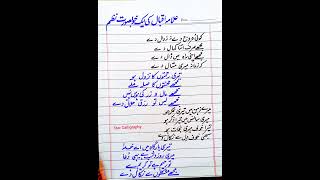 علامہ اقبال کی ایک خوبصورت نظم
کوئی عروج دے نہ زوال دے
مجھے صرف اتنا کمال دے
مجھے اپنی راہ میں ڈال دے
کہ زمانہ میری مثال دے
تیری رحمتوں کا نزول ہو
مجھے محنتوں کا صلہ ملے
مجھے مال و زر کی ہوس نہیں
مجھے بس تو رزق حلال دے
میرے ذہن میں تیری فکر ہو
میری سانس میں تیرا ذکر ہو
تیرا خوف میری نجات ہو
سبھی خوف دل سے نکال دے
تیری بارگاہ میں اے خدا
میری روز و شب ہے یہی دعا
تو رحیم ہے تو کریم ہے
مجھے مشکلوں سے نکال دے
Star Calligraphy